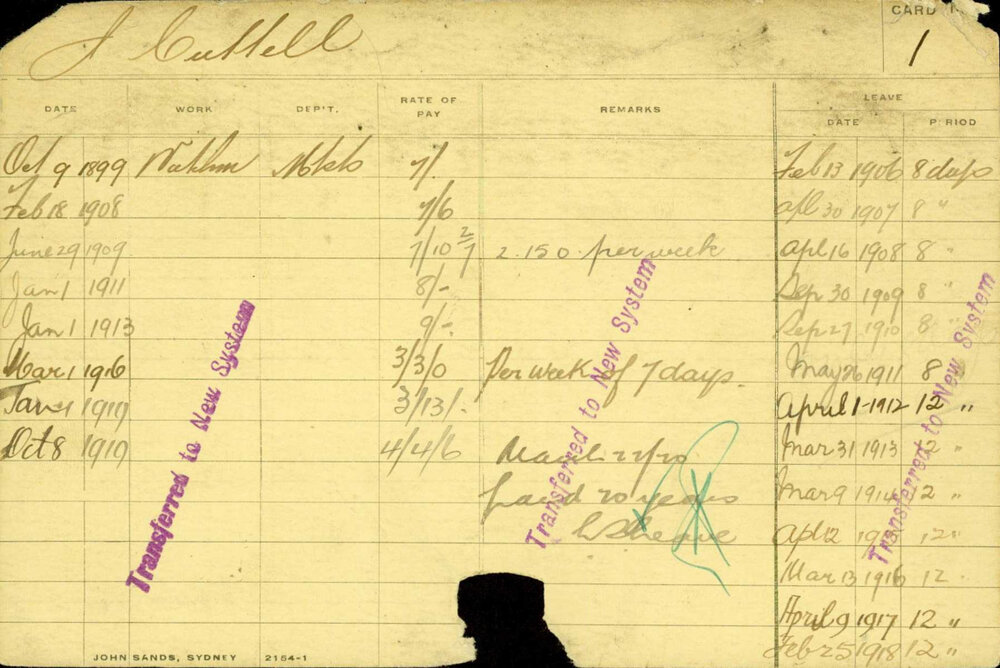 CARD N
1
J Cuttell
DATE WORK DEP'T. RATE OF PAY REMARKS LEAVE
DATE PERIOD
Oct 9 1899 7/. Feb 13 1906 8 days
Feb 18 1908 7/6 apl 30 1907 8 "
June 29 1909 7/10 2/7 2.15.0 per week apl 16 1908 8 "
Jan 1 1911 8/- Sep 30 1909 8 "
Jan 1 1913 9/- Sep 27 1910 8 "
Mar 1 1916 3/3/0 Per week of 7 days. May 26 1911 8 "
Jan 1 1919 3/13/- April 1 - 1912 12 "
Oct 8 1919 4/4/6 Mar 31 1913 12 "
20 years Mar 9 1914 12 "
leave Apl 12 12 "
Mar 13 1916 12
April 9 1917 12 "
Feb 25 1918 12 "
Transferred to New System
Transferred to New System
Transferred to New System
JOHN SANDS, SYDNEY 2154-1